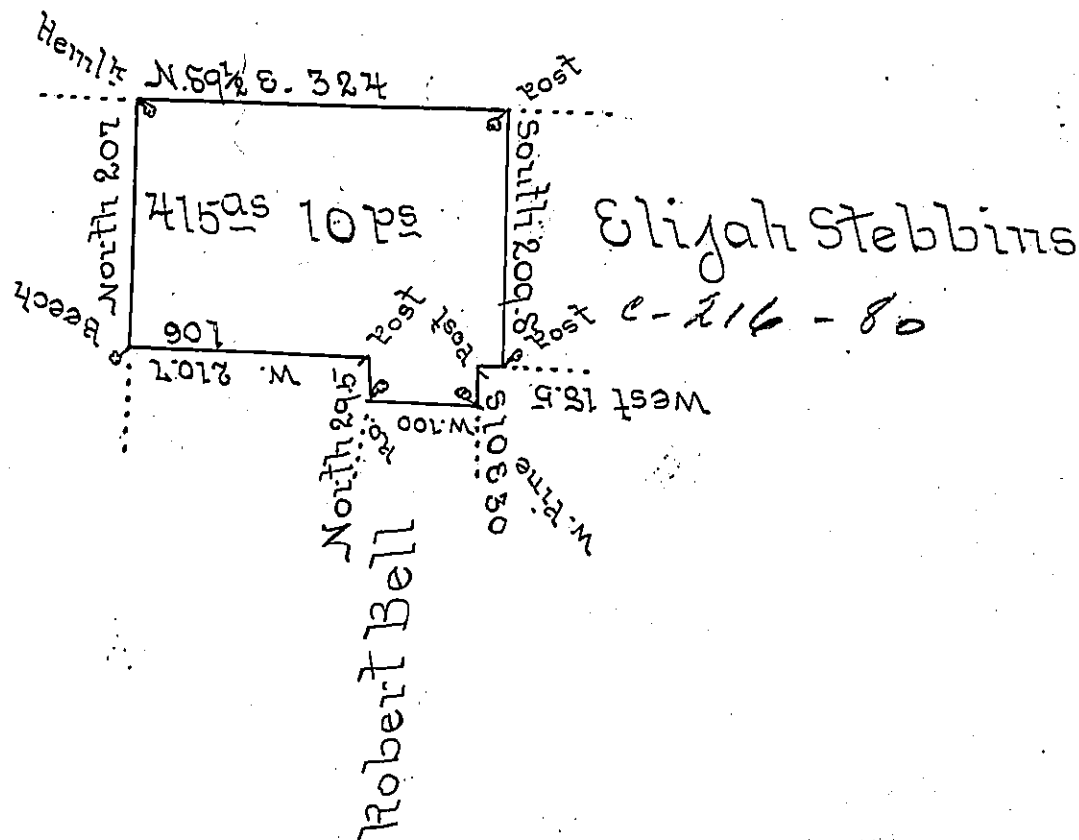 Hemlk
N.89½ E. 324
Post
North 207
415as 10ps
South 209.8
Elijah Stebbins
C-216-80
Beech
106
210.7 W.
Post
Post
Post
West 18.5
North 29.5
W.100
S10E30
W. Pine
Robert Bell